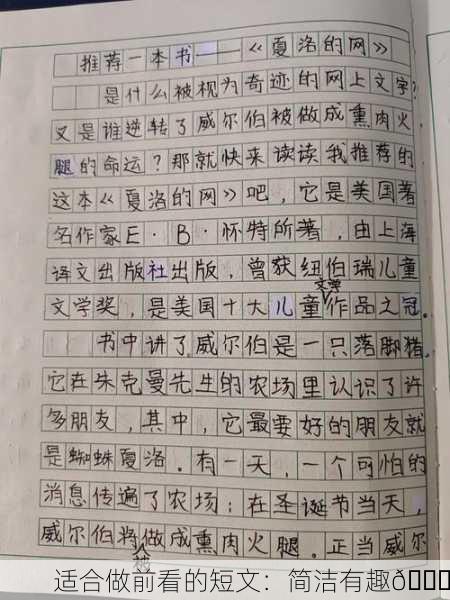 推荐一本书——《夏洛的网》
是什么被视为奇迹的网上文字?
又是谁逆转了威尔伯被做成熏肉火
腿的命运?那就快来读读我推荐的
这本《夏洛的网》吧,它是美国著
名作家E·B·怀特所著,由上海
译文出版社出版,曾获纽伯瑞儿童
文学奖,是美国十大儿童文学作品之冠。
书中讲了威尔伯是一只落脚猪。
它在朱克曼先生的农场里认识了许
多朋友,其中,它最要好的朋友就
是蜘蛛夏洛。有一天,一个可怕的
消息传遍了农场:在圣诞节当天,
威尔伯将被做成熏肉火腿。正当威尔
适合做前看的短文:简洁有趣